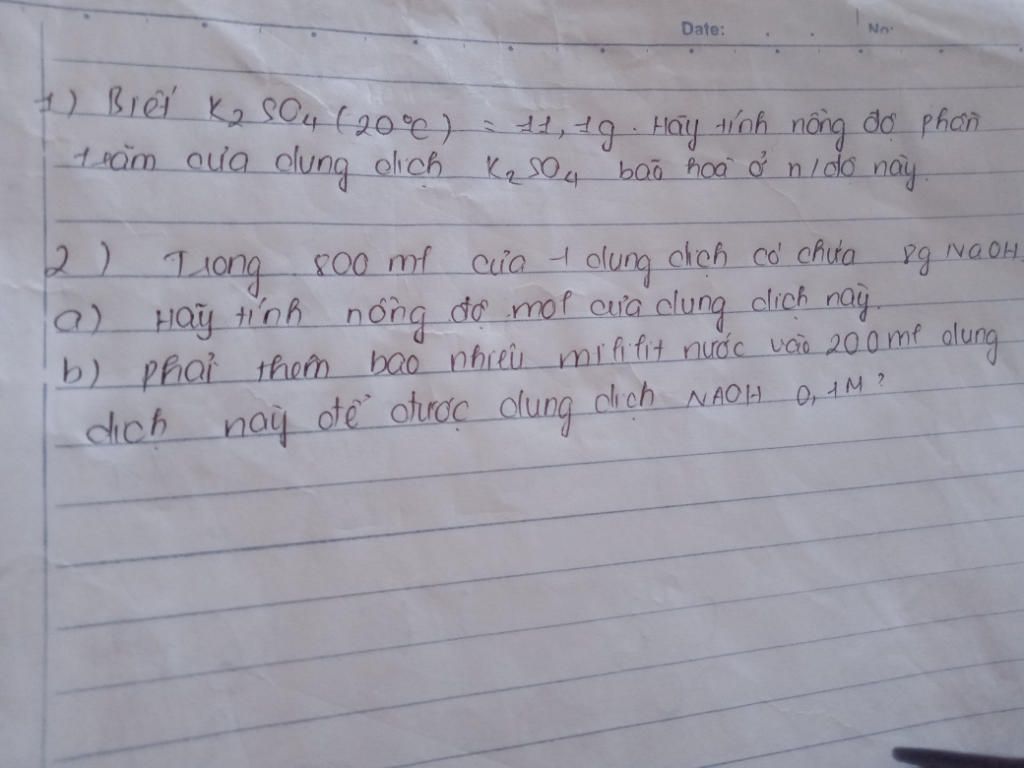 Date: No.
1) Biết K₂SO₄ (20°C) = 11,1g. Hãy tính nồng độ phần
trăm của dung dịch K₂SO₄ bão hoà ở n/độ này.
2) Trong 800 ml của 1 dung dịch có chứa 8g NaOH
a) Hãy tính nồng độ mol của dung dịch này.
b) phải thêm bao nhiêu mililit nước vào 200ml dung
dịch này để được dung dịch NAOH 0,1M?